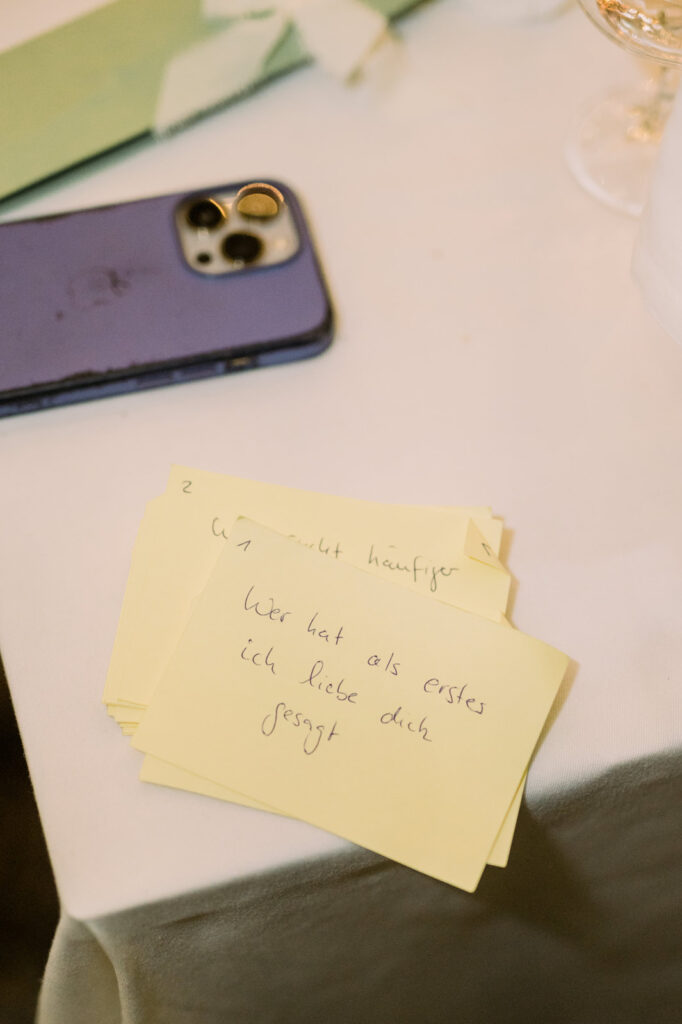 2
häufiger
1
Wer hat als erstes
ich liebe dich
gesagt